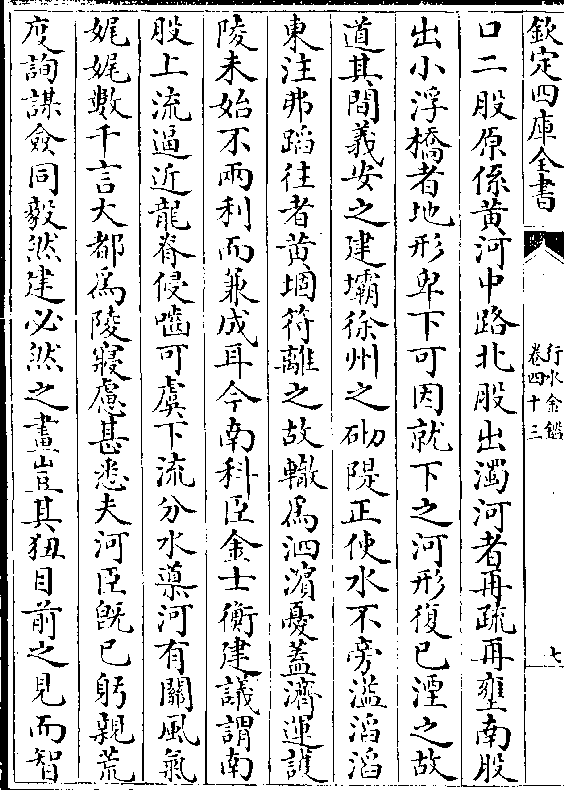 欽定四庫全書
行水金鑑
卷四十三
七
口二股原係黄河中路北股出濁河者再疏再壅南股
出小浮橋者地形卑下可因就下之河形復已湮之故
道其間義安之建壩徐州之砌隄正使水不旁溢滔滔
東注弗蹈往者黄堌符離之故轍為泗濱憂蓋濟運護
陵未始不兩利而兼成耳今南科臣金士衡建議謂南
股上流逼近龍脊侵嚙可虞下流分水導河有關風氣
娓娓數千言大都為陵寢慮甚悉夫河臣既已躬親荒
度詢謀僉同毅然建必然之畫豈其狃目前之見而智